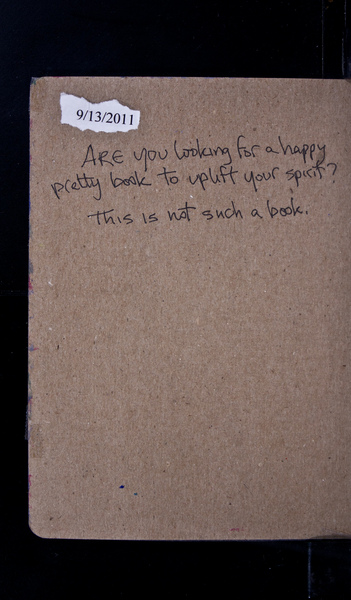 9/13/2011
ARE you looking for a happy
pretty book to uplift your spirit?
This is not such a book.